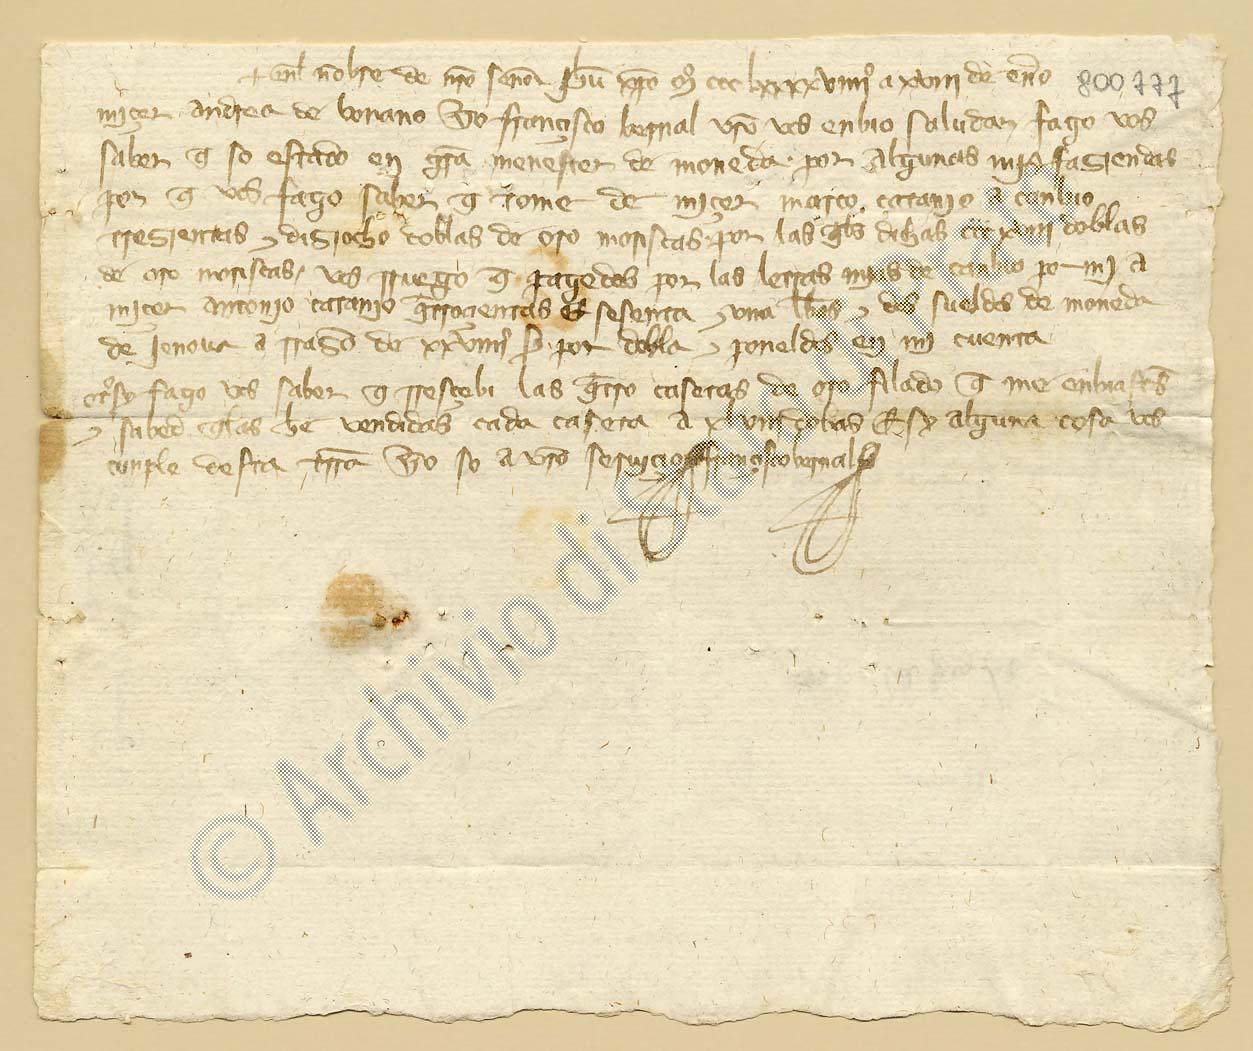 + enl nobre de nro señor jhu xpo M ccc lxxxxviiiiº a xviii de enrº 800777
miçer andrea de bonano yo françisco bernal vro vos enbio saludar fago vos
saber q so estado en grã menester de moneda por algunas mis fasiendas
por q vos fago saber q tome de miçer marco catanio a canbio
tresientas y disiocho doblas de oro moriscas por las qles dichas ccc xviii doblas
de oro moriscas vos rruego q pagedes por las letras mias de canbio por mi a
miçer antonio catanio qtrocientas e sesenta y una lbas y dos sueldos de moneda
de jenova a rrason de xxviiii s por dobla y poneldas en mi cuenta
otrsy fago vos saber q rresçebi las qtro casetas de oro filado q me enbiastes
y sabed qlas he vendidas cada caseta a xlviii doblas e sy alguna cosa vos
cunple desta trra yo so a vro seruiçio françisco bernal
© Archivio di Stato di Prato